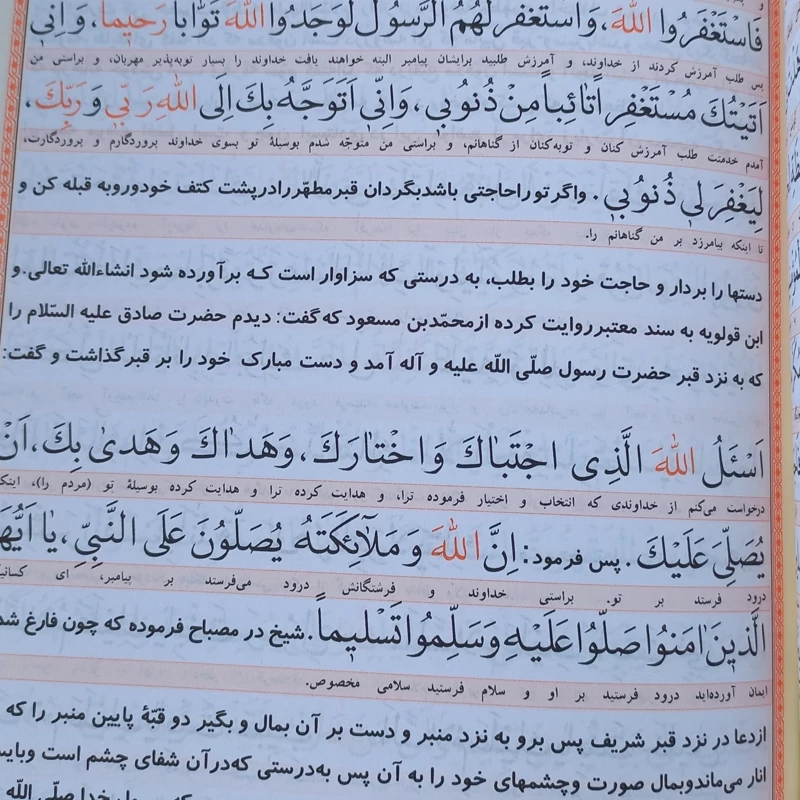 فَاسْتَغْفَرُوا اللهَ، وَاسْتَغْفَرَ لَهُمُ الرَّسُولُ لَوَجَدُوا اللهَ تَوَّاباً رَحِيماً، وَاِنّى
پس طلب آمرزش کردند از خداوند، و آمرزش طلبید برایشان پیامبر البته خواهند یافت خداوند را بسیار توبه‌پذیر مهربان، و براستی من
اَتَيْتُكَ مُسْتَغْفِراً تٰائِباً مِنْ ذُنُوبى، وَاِنّى اَتَوَجَّهُ بِكَ اِلَى اللهِ رَبّى وَ رَبِّكَ،
آمدم خدمتت طلب آمرزش کنان و توبه‌کنان از گناهانم، و براستی من متوجّه شدم بوسیلهٔ تو بسوی خداوند پروردگارم و پروردگارت،
لِيَغْفِرَ لى ذُنُوبى. واگر تو را حاجتی باشد بگردان قبر مطهّر را در پشت کتف خود و رو به قبله کن و
تا اینکه بیامرزد بر من گناهانم را.
دستها را بردار و حاجت خود را بطلب، به درستی که سزاوار است کـه برآورده شود انشاءالله تعالی. و
ابن قولویه به سند معتبر روایت کرده از محمّدبن مسعود که گفت: دیدم حضرت صادق علیه السّلام را
که به نزد قبر حضرت رسول صلّی اللّه علیه و آله آمد و دست مبارک خود را بر قبر گذاشت و گفت:
اَسْئَلُ اللهَ الَّذِى اجْتَبٰاكَ وَاخْتٰارَكَ، وَهَدٰاكَ وَهَدىٰ بِكَ، اَنْ
درخواست می‌کنم از خداوندی که انتخاب و اختیار فرموده ترا، و هدایت کرده ترا و هدایت کرده بوسیلهٔ تو (مردم را)، اینکه
يُصَلِّىَ عَلَيْكَ. پس فرمود: اِنَّ اللهَ وَ مَلٰٓائِكَتَهُ يُصَلُّونَ عَلَى النَّبِىِّ، يٰا اَيُّهَا
درود فرستد بر تو. براستی خداوند و فرشتگانش درود می‌فرستد بر پیامبر، ای کسانی
الَّذينَ اٰمَنُوا صَلُّوا عَلَيْهِ وَسَلِّمُوا تَسْليماً. شیخ در مصباح فرموده که چون فارغ شد
ایمان آورده‌اید درود فرستید بر او و سلام فرستید سلامی مخصوص.
از دعا در نزد قبر شریف پس برو به نزد منبر و دست بر آن بمال و بگیر دو قبّهٔ پایین منبر را که
انار می‌ماند و بمال صورت و چشمهای خود را به آن پس به‌درستی که در آن شفای چشم است و
خدا صلّی اللّه